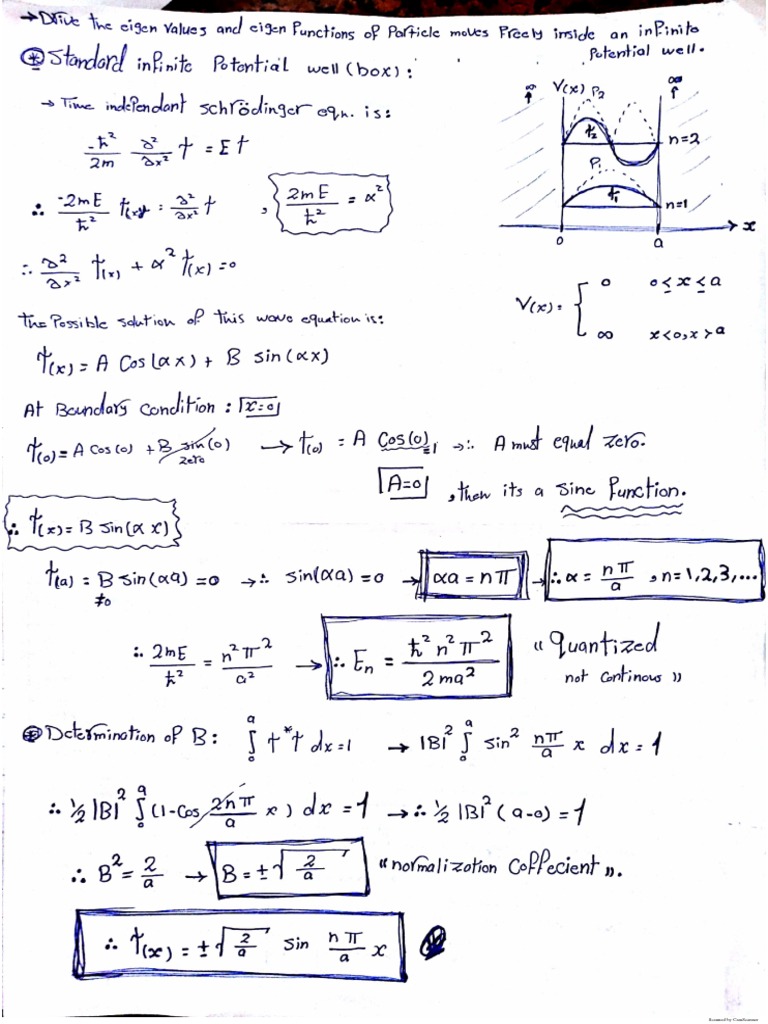 → Drive the eigen values and eigen functions of Particle moves Freely inside an infinite
Potential well.
⊛ Standard infinite Potential well (box):
∞ V(x) P₂ ∞
ψ₂ n=2
P₁
ψ₁ n=1
0 a → x
→ Time independant schrödinger eqn. is:
-ħ²/2m ∂²/∂x² ψ = Eψ
∴ -2mE/ħ² ψ(x) = ∂²/∂x² ψ , 2mE/ħ² = α²
∴ ∂²/∂x² ψ(x) + α² ψ(x) = 0
V(x) = { 0 0 ≤ x ≤ a
∞ x<0, x>a
The Possible solution of this wave equation is:
ψ(x) = A Cos(αx) + B sin(αx)
At Boundary Condition : x=0
ψ(0) = A cos(0) + B sin(0) → ψ(0) = A Cos(0) →∴ A must equal zero.
zero =1
A=0 , then its a sine Function.
∴ ψ(x) = B sin(αx)
ψ(a) = B sin(αa) = 0 →∴ sin(αa) = 0 → αa = nπ →∴ α = nπ/a , n=1,2,3,...
≠0
∴ 2mE/ħ² = n²π²/a² → ∴ Eₙ = ħ²n²π²/2ma² "Quantized
not Continous"
⊛ Determination of B: ∫₀ᵃ ψ*ψ dx = 1 → |B|² ∫₀ᵃ sin² nπ/a x dx = 1
∴ ½ |B|² ∫₀ᵃ (1-Cos 2nπ/a x) dx = 1 →∴ ½ |B|² (a-0) = 1
∴ B² = 2/a → B = ±√2/a "normalization Coffecient".
∴ ψ(x) = ±√2/a sin nπ/a x
Scanned by CamScanner